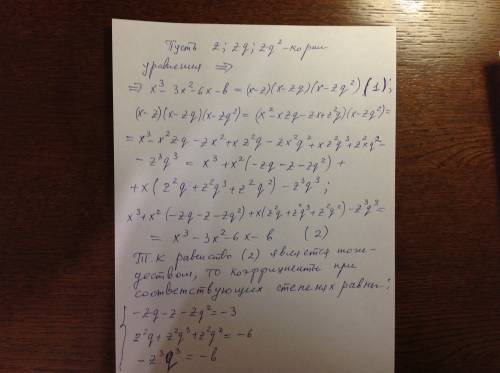 Пусть z; zq; zq²-корни
уравнения ⇒
⇒ x³- 3x²-6x-b = (x-z)(x-zq)(x-zq²) (1);
(x-z)(x-zq)(x-zq²) = (x²-xzq-zx+z²q)(x-zq²)=
= x³-x²zq-zx²+xz²q-zx²q²+xz²q³+z²xq²-
- z³q³ = x³+x²(-zq-z-zq²)+
+x(z²q+z²q³+z²q²)-z³q³;
x³+x²(-zq-z-zq²)+x(z²q+z²q³+z²q²)-z³q³=
= x³-3x²-6x-b (2)
Т.к равенство (2) является тож-
деством, то коэффициенты при
соответствующих степенях равны:
{ -zq-z-zq²=-3
z²q+z²q³+z²q²=-6
-z³q³=-b